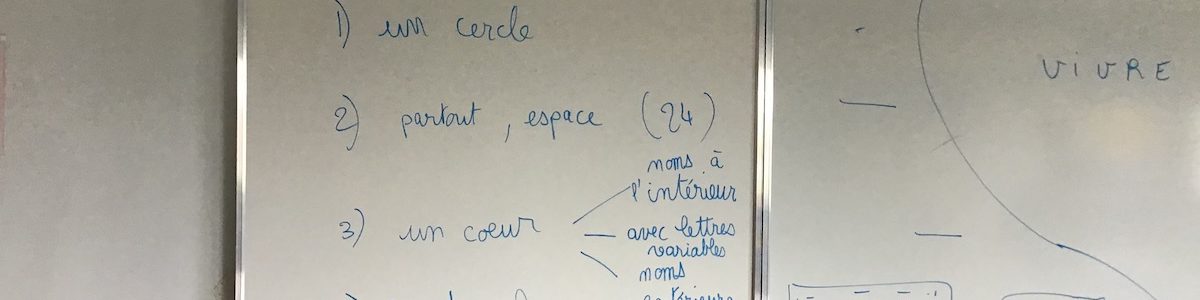 1) un cercle
2) partout, espace (24)
3) un coeur
noms à
l'intérieur
avec lettres
variables
noms
VIVRE